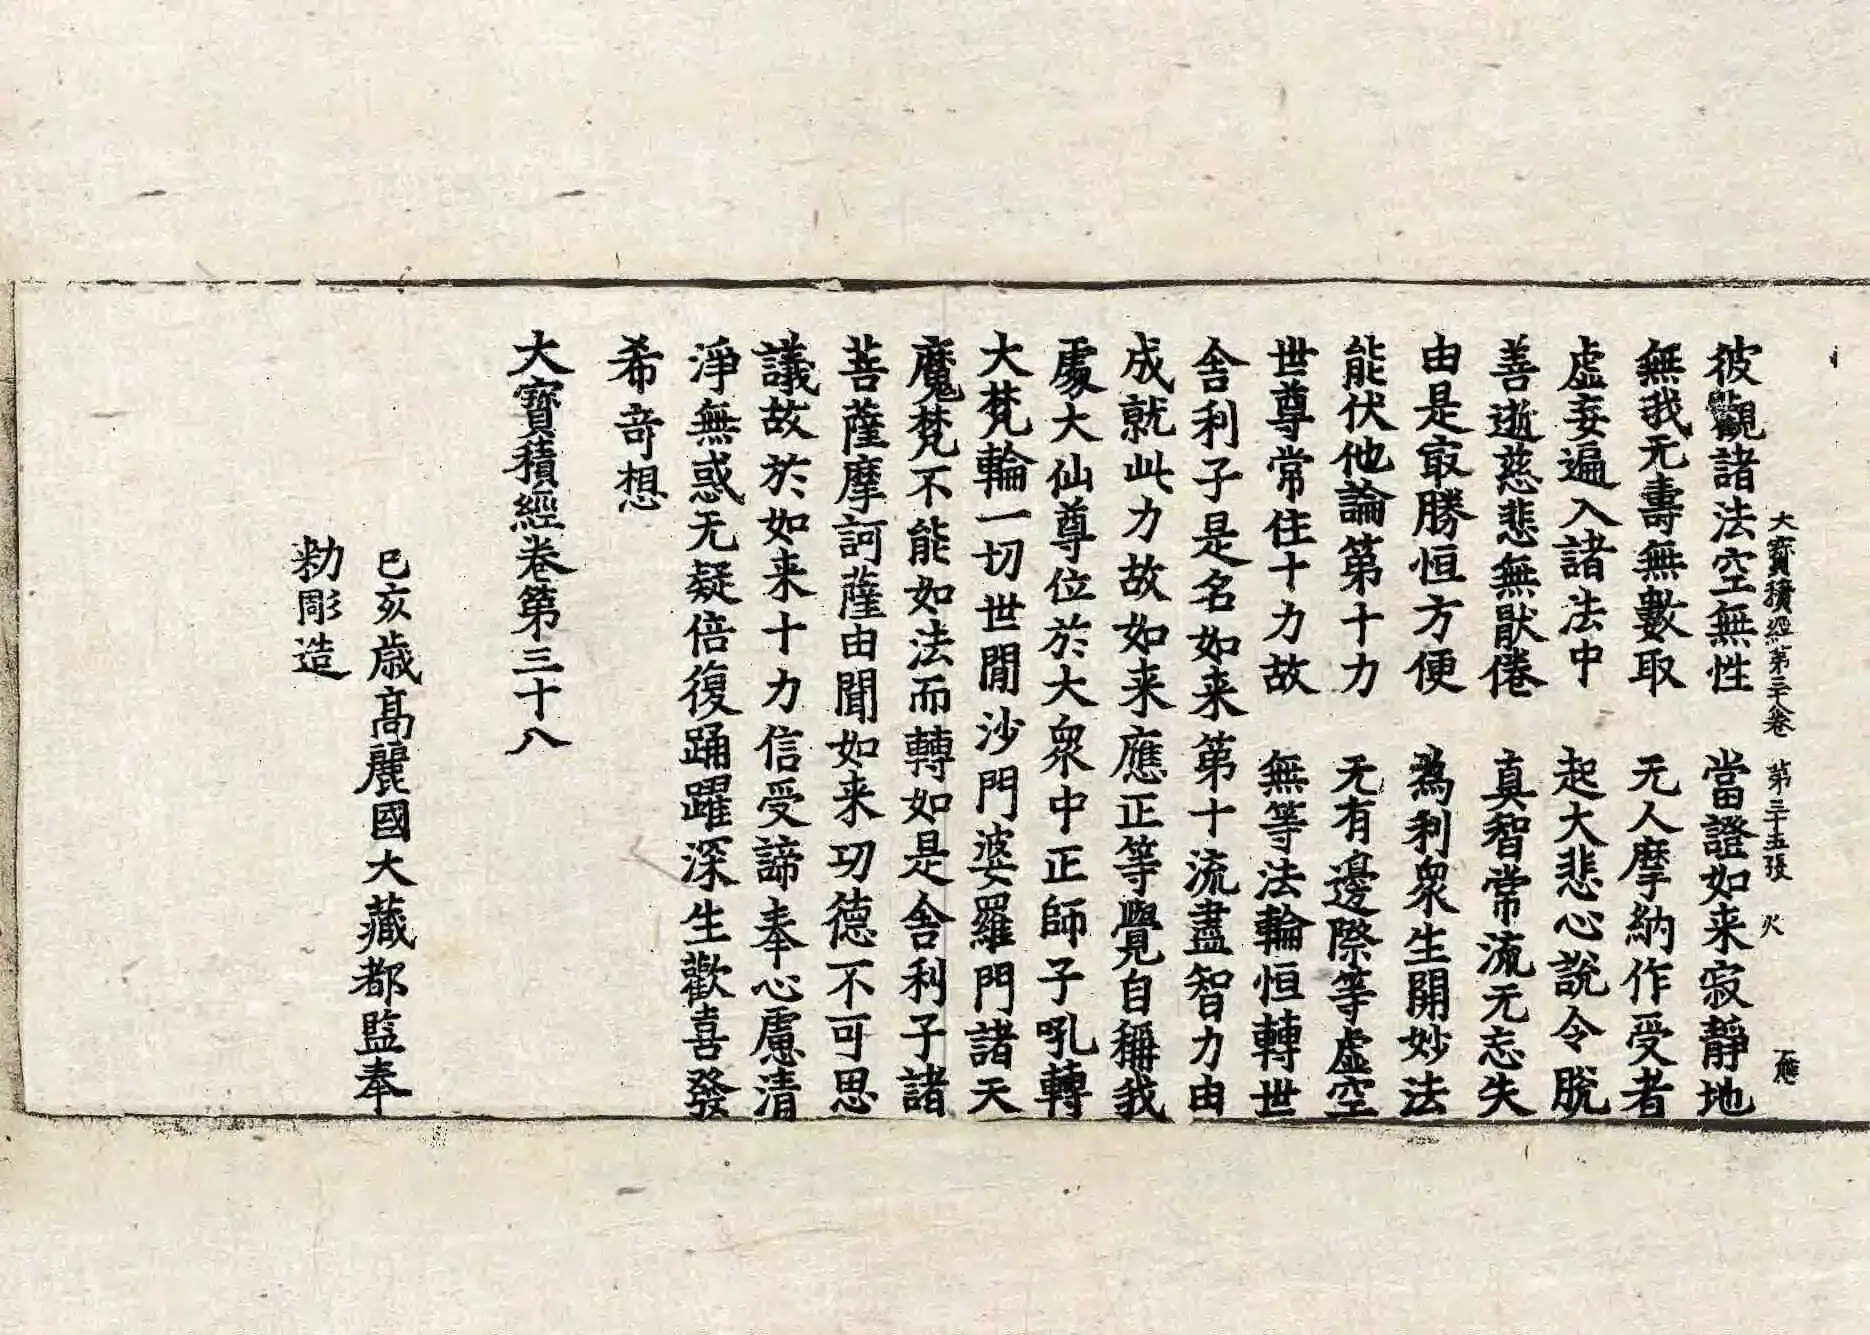 大寶積經第三十八卷 第三十五張 火 應
彼觀諸法空無性 當證如来寂靜地
無我无壽無數取 无人摩納作受者
虛妄遍入諸法中 起大悲心說令脫
善逝慈悲無猒倦 真智常流无忘失
由是㝡勝恒方便 為利衆生開妙法
能伏他論第十力 无有邊際等虛空
世尊常住十力故 無等法輪恒轉世
舎利子是名如来第十流盡智力由
成就此力故如来應正等覺自稱我
處大仙尊位於大衆中正師子吼轉
大梵輪一切世間沙門婆羅門諸天
魔梵不能如法而轉如是舎利子諸
菩薩摩訶薩由聞如来功德不可思
議故於如来十力信受諦奉心慮清
淨無惑无疑倍復踊躍深生歡喜發
希奇想
大寶積經卷第三十八
己亥歲高麗國大藏都監奉
勑彫造